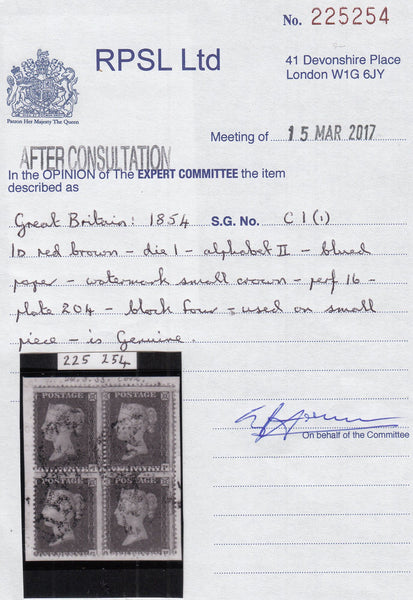 No. 225254
RPSL Ltd
41 Devonshire Place
London W1G 6JY
Patron Her Majesty The Queen
Meeting of 15 MAR 2017
AFTER CONSULTATION
In the OPINION of The EXPERT COMMITTEE the item
described as
Great Britain: 1854 S.G. No. C1(1)
1D red brown - die 1 - alphabet II - blued
paper - watermark small crown - perf 16 -
plate 204 - block four - used on small
piece - is Genuine.
225 254
POSTAGE POSTAGE
POSTAGE POSTAGE
On behalf of the Committee